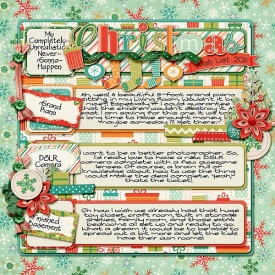 My
Completely
Unrealistic
Never-
Gonna-
Happen
Christmas
Wish List 2011
Grand
Piano
Ah, yes! A beautiful 5-foot grand piano
sitting in my living room. Wouldn't it be
great? Especially if I could guarantee
that the children wouldn't destroy it.
And that I had time to play. It will be
a long time to have enough money, but
maybe someday I'll get one.
DSLR
Camera
I want to be a better photographer. So,
I'd really love to have a new DSLR
camera complete with a few gourmet
lenses. Of course, a brain full of
knowledge about how to use the thing
would make the deal complete. Yeah,
that's the ticket!
Finished
Basement
Oh how I wish we already had that huge
toy closet, craft room, built in storage
shelves, family room, and those extra
bedrooms all set up and ready to go.
What a dream it would be to be able to
spread out a bit more and let the kids
have their own rooms!